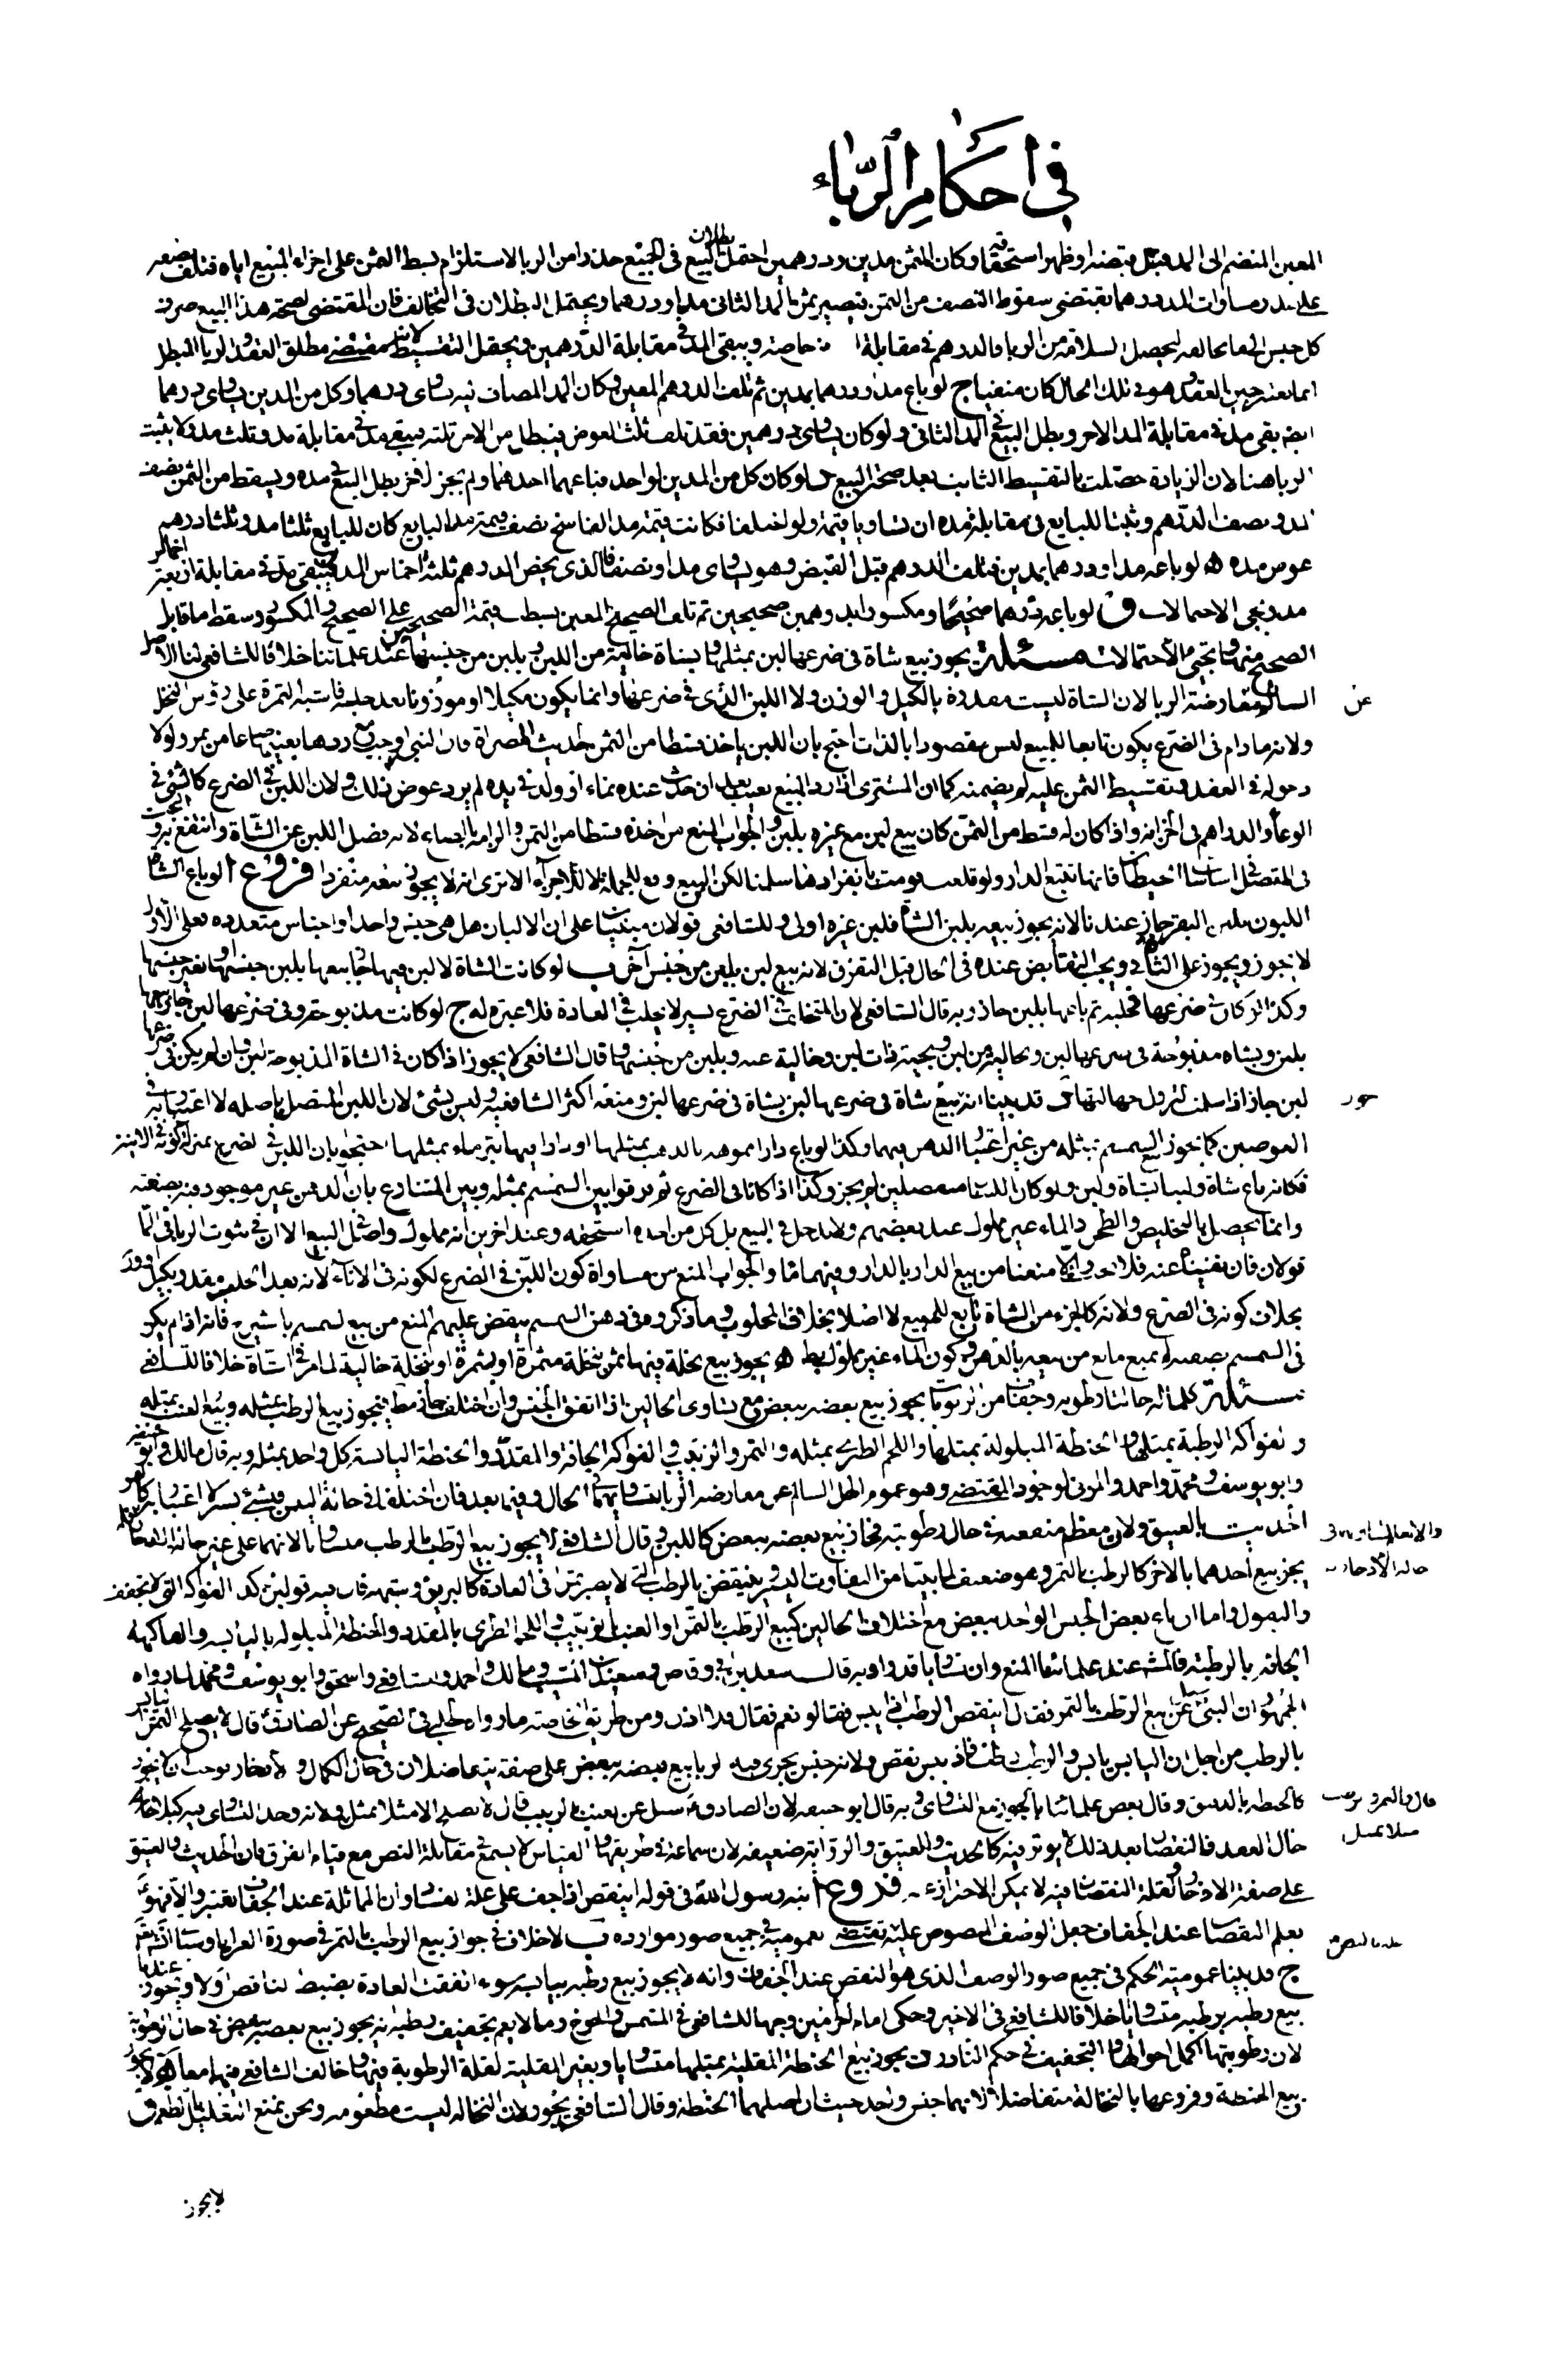 في احكام الرباء
المعين المنضم الى المد قبل قبضه او ظهر استحقاقه وكان الثمن مدين ودرهمين احتمل بطلان البيع في الجميع حذرا من الربا لاستلزام بسط الثمن على اجزاء المبيع اياه فتلف نصفه
على تقدير مساوات المد درهما يقتضي سقوط النصف من الثمن فيصير ثمن المد الثاني مدا ودرهما ويحتمل البطلان في التخالف فان المقتضي لصحة هذا البيع صرف
كل جنس الى ما يخالفه ليحصل السلامة من الربا فالدرهم في مقابلة خاصة ويبقى المد في مقابلة الدرهمين ويحتمل التقسيط لانه مقتضى مطلق العقد والربا المبطل
انما يعتبر حين العقد وهو في تلك الحال كان منفيا ج لو باع مدا ودرهما بمدين ثم تلف الدرهم المعين وكان المد المضاف اليه يساوي درهما وكل من المدين يساوي درهما
ايضا بقي مد في مقابلة المد الاخر وبطل البيع في المد الثاني ولو كان يساوي درهمين فقد تلف ثلث العوض فيبطل من الاخر ثلثه فيبقى مد في مقابلة مد وثلث مد ولا يثبت
الربا هنا لان الزيادة حصلت بالتقسيط الثابت بعد صحة البيع د لو كان كل من المدين لواحد فباعهما احدهما ولم يجز الاخر بطل البيع في مده ويسقط من الثمن نصف
المد ونصف الدرهم ويثبتا للبايع في مقابلة مده ان تساويا قيمة ولو اختلفا فكانت قيمة مد الفاسخ نصف قيمة مد البايع كان للبايع ثلثا مد وثلثا درهم
عوض مده ه لو باعه مدا ودرهما بمدين فتلف الدرهم قبل القبض وهو يساوي مدا ونصفا فالذي يخص الدرهم ثلثة اخماس المدين فيبقى مد في مقابلة اربعة اخماس
مد ويجئ الاحتمالات و لو باعه درهما صحيحا ومكسورا بدرهمين صحيحين ثم تلف الصحيح المعين بسط قيمة الصحيحين على الصحيح والمكسور وسقط ما قابل
الصحيح منهما ويجئ الاحتمالات مسئلة يجوز بيع شاة في ضرعها لبن بمثلها وبشاة خالية من اللبن وبلبن من جنسها عند علمائنا خلافا للشافعي لنا الاصل
السالم عن معارضة الربا لان الشاة ليست مقدرة بالكيل والوزن ولا اللبن الذي في ضرعها وانما يكون مكيلا او موزونا بعد حلبه فاشبه الثمرة على رؤس النخل
ولانه ما دام في الضرع يكون تابعا للمبيع ليس مقصودا بالذات احتج بان اللبن ياخذ قسطا من الثمن لحديث المصراة فان النبي اوجب مع ردها بعينها صاعا من تمر ولولا
دخوله في العقد وتقسيط الثمن عليه لم يضمنه كما ان المشتري اذا رد المبيع بعيب بعد ان حدث عنده نماء او ولد في يده لم يرد عوض ذلك ولان اللبن في الضرع كالشئ في
الوعاء والدراهم في الخزانة واذا كان له قسط من الثمن كان بيع لبن مع غيره بلبن والجواب المنع من اخذه قسطا من الثمن والزامه بالصاع لانه فضل اللبن عن الشاة وانتفع به
المتصل اساسات الحيطان فانها تتبع الدار ولو قلعت قومت بانفرادها سلمنا لكن البيع وقع للجملة لا للاجزاء الا ترى انه لا يجوز بيعه منفردا فروع ا لو باع الشاة
اللبون بلبن البقر جاز عندنا لانه يجوز بيعه بلبن الشاة فلبن غيره اولى وللشافعي قولان مبنيان على ان الالبان هل هي جنس واحد او اجناس متعددة فعلى الاول
لا يجوز ويجوز على الثاني ويجب التقابض عنده في الحال قبل التفرق لانه بيع لبن بلبن من جنس آخر ب لو كانت الشاة لا لبن فيها جاز بيعها بلبن جنسها وغير جنسها
وكذا لو كان في ضرعها فحلبه ثم باعها بلبن جاز وبه قال الشافعي لان المتخلف في الضرع يسير لا يحلب في العادة فلا عبرة له ج لو كانت مذبوحة وفي ضرعها لبن جاز بيعها
بلبن وبشاة مذبوحة في ضرعها لبن وخالية من لبن وبحية ذات لبن وخالية عنه وبلبن من جنسها وقال الشافعي لا يجوز اذا كان في الشاة المذبوحة لبن وان لم يكن في ضرعها
لبن جاز اذا سلخت ليزول جهالتها د قد بينا انه يجوز بيع شاة في ضرعها لبن بشاة في ضرعها لبن ومنعه اكثر الشافعية وليس بشئ لان اللبن المتصل باصله لا اعتبار به في
العوضين كما يجوز بيع السمسم بمثله من غير اعتبار الدهن فيهما وكذا لو باع دارا مموهة بالذهب بمثلها او دارا فيها بئر ماء بمثلها احتجوا بان اللبن في الضرع بمنزلة كونه في الانية
فكانه باع شاة ولبنا بشاة ولبن ولو كان اللبنان منفصلين لم يجز وكذا اذا كانا في الضرع ثم فرقوا بين السمسم بمثله وبين المتنازع بان الدهن غير موجود فيه بصفته
وانما يحصل بالتخليص والطحن والماء غير مملوك عند بعضهم ولا يدخل في البيع بل كل من اخذه استحقه وعند اخرين انه مملوك داخل في البيع الا ان في ثبوت الربا في الماء
قولان فان نفيناه عنه فلا بحث والا منعنا من بيع الدار بالدار وفيهما ماء والجواب المنع من مساواة كون اللبن في الضرع لكونه في الاناء لانه بعد الحلب مقدر بكيل او وزن
بخلاف كونه في الضرع ولانه كالجزء من الشاة تابع للمبيع لا اصلا بخلاف المحلوب وما ذكروه في دهن السمسم ينقض عليهم المنع من بيع السمسم بالشيرج فانه اذا لم يكن
في السمسم بصفته لم يمنع مانع من بيعه بالدهن وكون الماء غير مملوك غلط ه يجوز بيع نخلة فيها تمر بنخلة مثمرة او بثمرة او بنخلة خالية لما مر في الشاة خلافا للشافعي
مسئلة كلما له حالتا رطوبة وجفاف من الربويات يجوز بيع بعضه ببعض مع تساوي الحالين اذا اتفق الجنس وان اختلف جاز مطلقا فيجوز بيع الرطب بمثله وبيع العنب بمثله
والفواكه الرطبة بمثلها والحنطة المبلولة بمثلها واللحم الطري بمثله والتمر والزبيب والفواكه الجافة والمقدد والحنطة اليابسة كل واحد بمثله وبه قال مالك وابو حنيفة
وابو يوسف ومحمد واحمد والمزني لوجود المقتضي وهو عموم احل السالم عن معارضة الربا بتساويهما في الحال وفيما بعد فان اختلفا في حالة اليبس فبشئ يسير لا اعتبار به كما هو
الحديث بالعتيق ولان معظم منفعته في حال رطوبته فجاز بيع بعضه ببعض كاللبن وقال الشافعي لا يجوز بيع الرطب بالرطب متساويا لانهما على غير حالة الادخار فلم
يجز بيع احدهما بالاخر كالرطب بالتمر وهو ضعيف لما بينا من التفاوت اليسير وينقض بالرطب الذي لا يصير تمرا في العادة كالبربن وشبهه فان فيه قولين وكذا الفواكه التي لا تجفف
والبقول واما اذا باع بعض الجنس الواحد ببعض مع اختلاف الحالين كبيع الرطب بالتمر او العنب بالزبيب واللحم الطري بالمقدد والحنطة المبلولة باليابسة والفاكهة
الجافة بالرطبة فالمشهور عند علمائنا المنع وان تساويا قدرا وبه قال سعد بن ابي وقاص وسعيد بن المسيب ومالك واحمد والشافعي واسحق وابو يوسف ومحمد لما رواه
الجمهور ان النبي سئل عن بيع الرطب بالتمر فقال اينقص الرطب اذا يبس فقالوا نعم فقال فلا اذن ومن طريق الخاصة ما رواه الحلبي في الصحيح عن الصادق قال لا يصلح التمر اليابس
بالرطب من اجل ان اليابس يابس والرطب رطب فاذا يبس نقص ولانه جنس يجري فيه الربا بيع بعضه ببعض على صفة يتفاضلان في حال الكمال والادخار فوجب ان لا يجوز
كالحنطة بالدقيق وقال بعض علمائنا بالجواز مع التساوي وبه قال ابو حنيفة لان الصادق سئل عن العنب بالزبيب قال لا يصلح الا مثلا بمثل ولانه وجد التساوي فيه كيلا حالة
حال العقد فالنقصان بعد ذلك لا يؤثر فيه كالحديث والعتيق والرواية ضعيفة لان سماعة في طريقها والقياس لا يسمع في مقابلة النص مع قيام الفرق فان الحديث والعتيق
على صفة الادخار ولقلة النقصان فيه لا يمكن الاحتراز عنه فروع ا نبه رسول الله في قوله اينقص اذا جف على علة الفساد وان المماثلة عند الجفاف تعتبر والا فهو
يعلم النقصان عند الجفاف فجعل الوصف المنصوص عليه يقتضي عموميته في جميع صور موارده ب لا خلاف في جواز بيع الرطب بالتمر في صورة العرايا وسيأتي
ج قد بينا عمومية الحكم في جميع صور الوصف الذي هو النقص عند الجفاف وانه لا يجوز بيع رطبه بيابسه سواء اتفقت العادة بضبط الناقص او لا ويجوز عندنا
بيع رطبه برطبه متساويا خلافا للشافعي في الاخير وحكى امام الحرمين وجها للشافعي في المشمش والخوخ وما لا يعم تجفيف رطبه انه يجوز بيع بعضه ببعض في حال الرطوبة
لان رطوبتها اكمل احوالها والتجفيف في حكم النادر د يجوز بيع الحنطة المقلية بمثلها متساويا وبغير المقلية لقلة الرطوبة فيها وخالف الشافعي فيهما معا ه لا يجوز
بيع الحنطة وفروعها بالنخالة متفاضلا لانهما جنس واحد حيث ان اصلهما الحنطة وقال الشافعي يجوز لان النخالة ليست مطعومة ونحن نمنع التعليل بالطعم و
لا يجوز